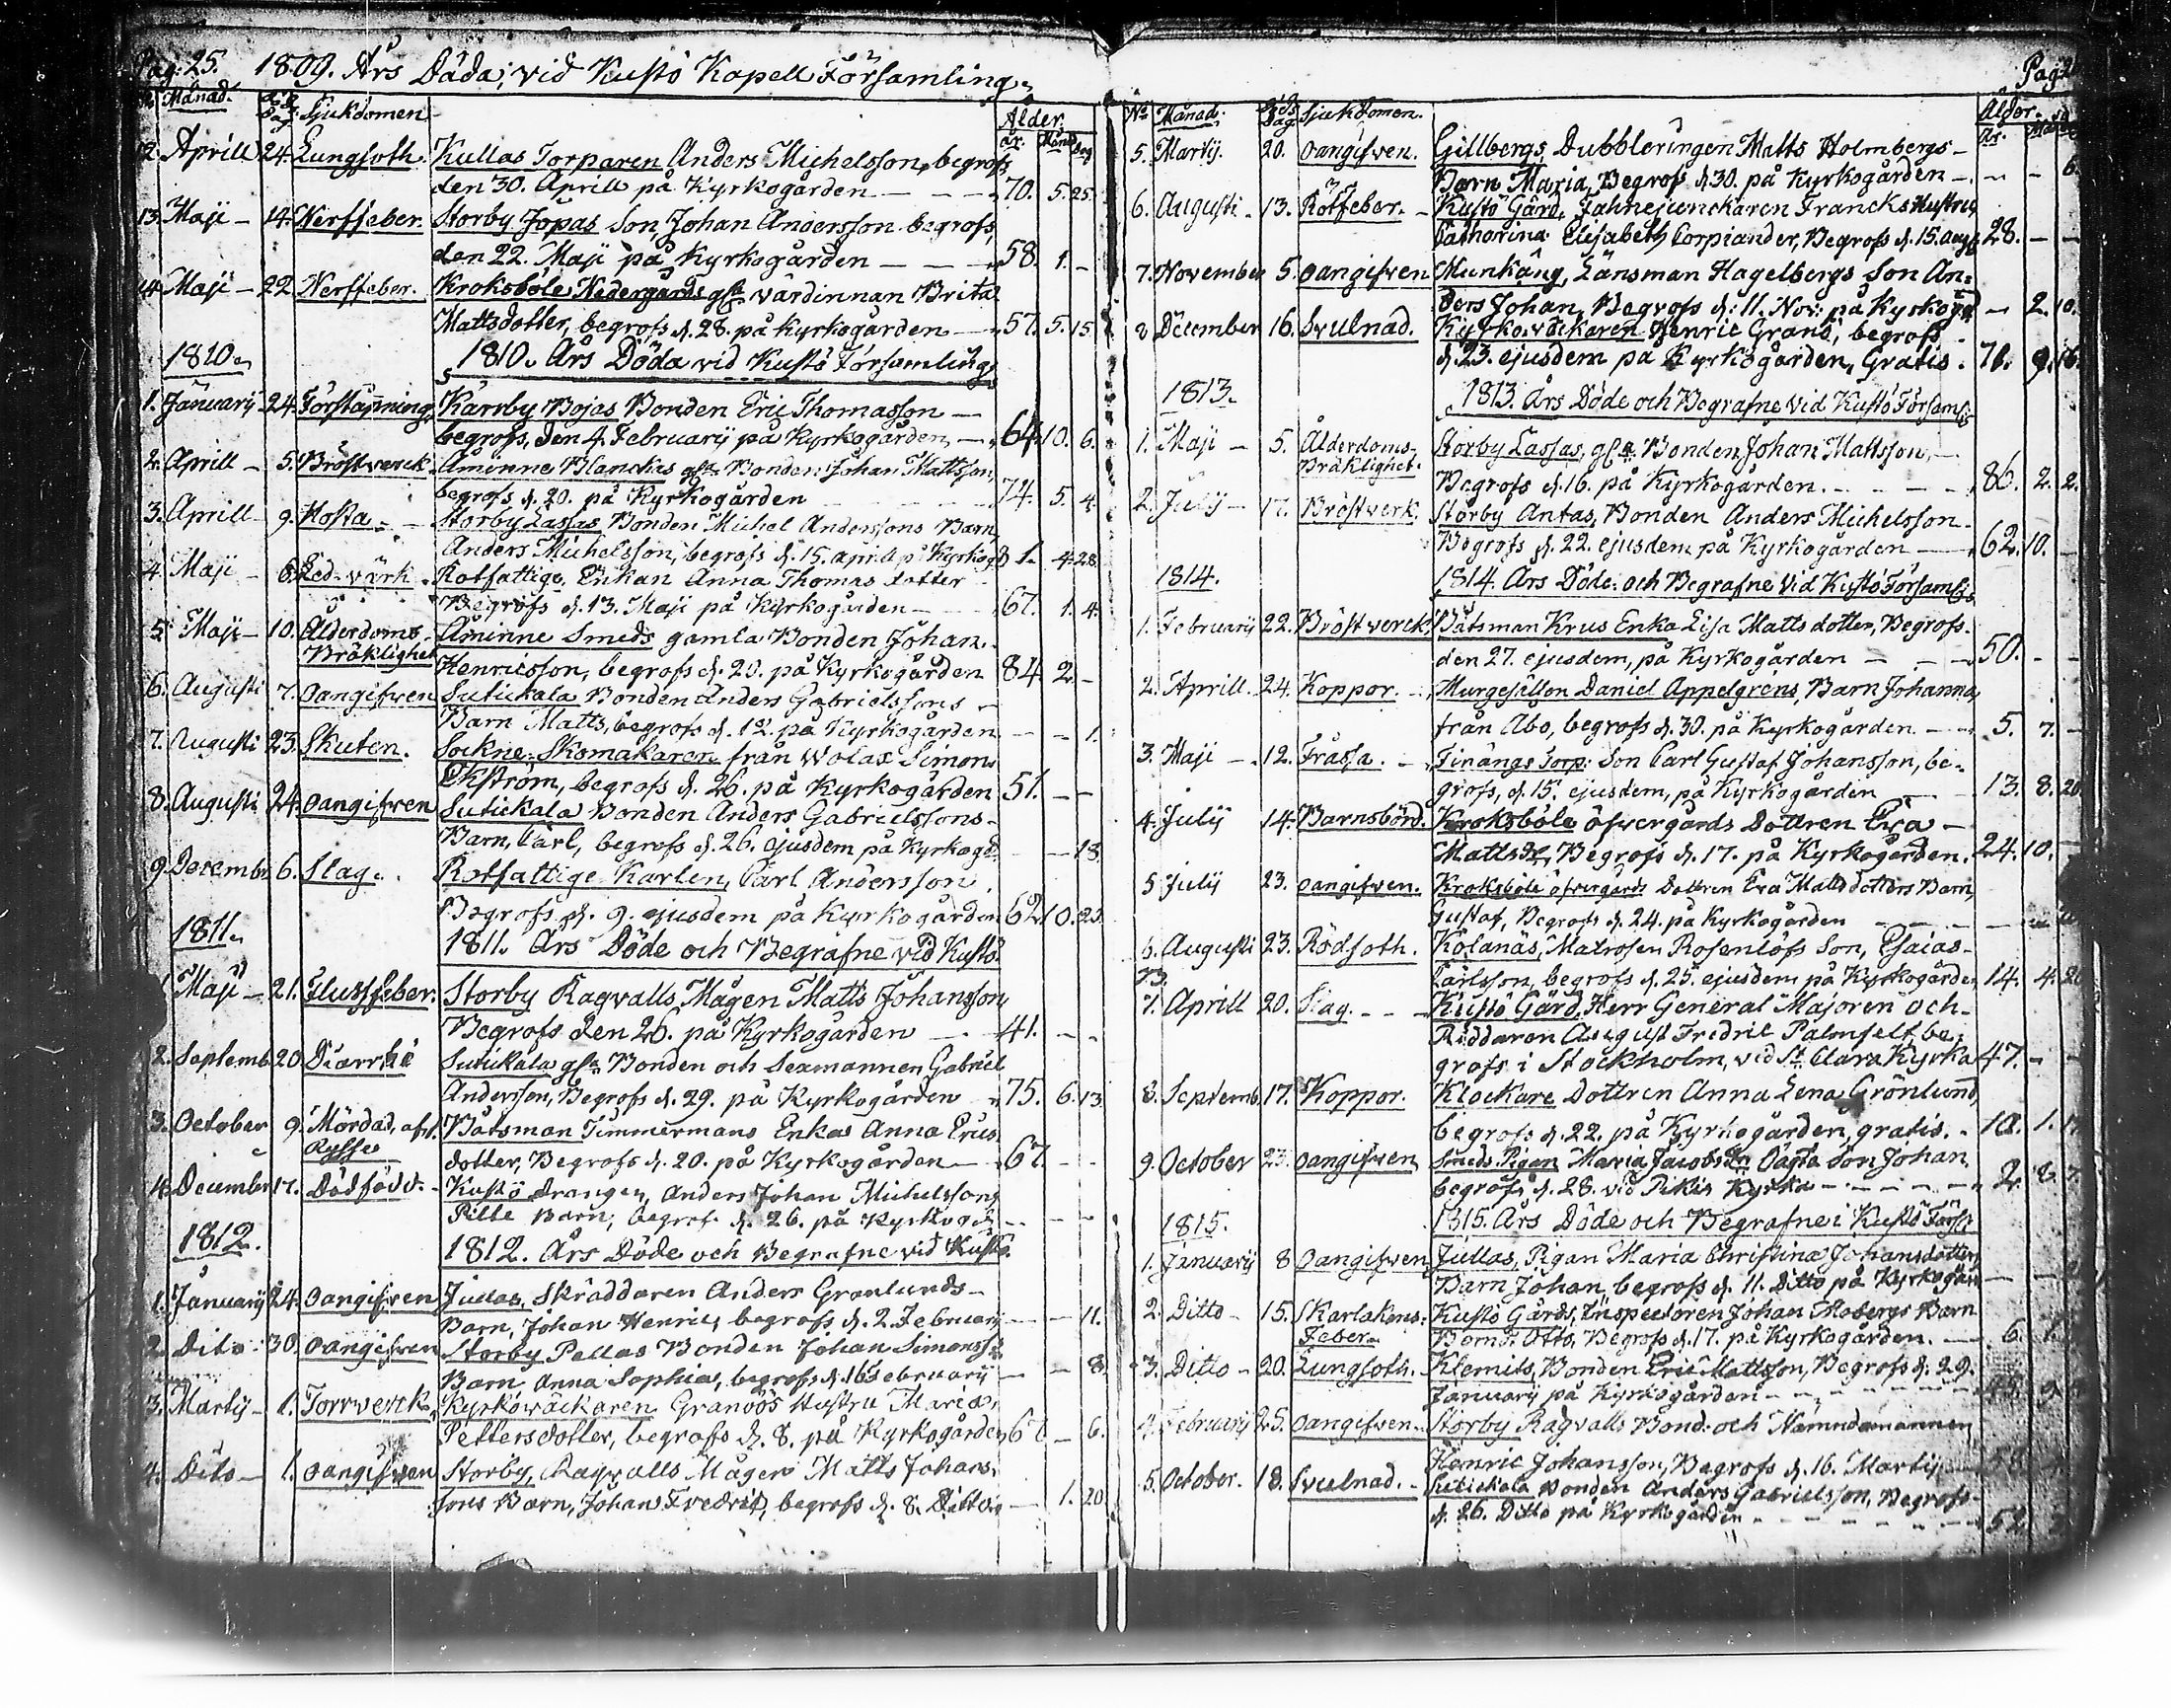 Pag: 25. 1809. Års Döda, vid Kustö Kapell Församling.
Månad. Sjukdomen Ålder.
år. Mån: dag
12. Aprill 24. Lungsoth. Kullas Torparen Anders Michelsson, begrofs
den 30. Aprill på Kyrkogården 70. 5. 25.
13. Maji 14. Nerffeber. Storby Jopas Son, Johan Andersson begrofs,
den 22. Maji på Kyrkogården 58. 1. -
14. Maji 22 Nerffeber. Kroksböle Nedergårds värdinnan Brita
Mattsdotter, begrofs d. 28. på Kyrkogården 57. 5. 15.
1810. 1810. Års Döda vid Kustö Församling
1. Januarij 24. Förstäpning Kärrby Bojas Bonden Eric Thomasson
begrofs, den 4. Februarij på Kyrkogården 64. 10. 6.
2. Aprill 5. Bröstverck. Åminne Blanckas Bonden Johan Mattsson,
begrofs d. 20. på Kyrkogården 74. 5. 4.
3. Aprill 9. Hosta Storby Lassas Bonden Michel Anderssons Barn
Anders Michelsson, begrofs d. 15. aprill på Kyrkog: 1. 4. 28.
4. Maji 6. Led-värk. Rotfattige Enkan Anna Thomas dotter
Begrofs d. 13. Maji på Kyrkogården 67. 1. 4.
5. Maji 10. Ålderdoms- Åminne Smeds gamla Bonden Johan
Bräklighet Henricsson, begrofs d. 20. på Kyrkogården 84 2. -
6. Augusti 7. Oangifwen Sutickala Bonden Anders Gabrielssons
Barn Matts, begrofs d. 12. på Kyrkogården - - 1.
7. Augusti 23. Skuten. Sockne-Skomakaren från Wolax Simon
Ekström, begrofs d. 26. på Kyrkogården 51. - -
8. Augusti 24. Oangifwen Sutickala Bonden Anders Gabrielssons
Barn, Carl, begrofs d. 26. ejusdem på Kyrkogd - - 18.
9. Decembr 6. Slag. Rotfattige Karlen, Carl Andersson
Begrofs d. 9. ejusdem på Kyrkogården 62. 10. 23.
1811. 1811. Års Döde och Begrafne vid Kustö
1. Maji 21. Flussfeber. Storby Ragvalls Mågen Matts Johansson
Begrofs den 26. på Kyrkogården 41. - -
2. Septemb 20 Diarrhé Sutickala Bonden och Sexmannen Gabriel
Andersson, Begrofs d. 29. på Kyrkogården 75. 6. 13.
3. October 9. Mördad, af Båtsman Timmermans Enka Anna Erics
Rysse dotter, Begrofs d. 20. på Kyrkogården 67. - -
4. Decembr 17. Dödfödd. Kustö drängen, Anders Johan Michelssons
Pille Barn, begrof. d. 26. på Kyrkogd - - -
1812. 1812. Års Döde och Begrafne vid Kustö.
1. Januarij 24. Oangifwen Jullas, Skräddaren Anders Grönlunds
Barn, Johan Henric, begrofs d. 2. Februarij - - 11.
2. Dito 30. Oangifwen Storby Pellas Bonden Johan Simonss:
Barn Anna Sophia, begrofs d. 16 Februarij - - 8.
3. Martij 1. Torrverck Kyrkowäckaren Granöös Hustru Maria
Pettersdotter, begrofs d. 8. på Kyrkogården 67. - 6.
4. Dito 1. Oangifwen Storby, Ragvalls Mågen Matts Johans-
sons Barn, Johan Fredric, begrofs d. 8. Ditto - 1. 20.
Pag
No Månad. Dag Sjukdomen. Ålder.
år.
5. Martij. 20. Oangifwen. Gillbergs, Dubbleringen Matts Holmbergs
Barn Maria, Begrof d. 30. på Kyrkogården - - 6.
6. Augusti 13. Rötfeber. Kustö Gård, Fahnejunckaren Francks Hustru
Catharina Elisabeth Corpiander, Begrof d. 15. Aug. 28. - -
7. November 5. Oangifwen Munkäng, Länsman Hagelbergs Son An-
ders Johan, Begrofs d: 11. Nov: på Kyrkogd - 2. 10.
8 December 16. Svulnad. Kyrkowäckaren Henric Granö, begrofs
d. 23. ejusdem på Kyrkogården, Gratis. 71. 9. 16.
1813. 1813. Års Döde och Begrafne vid Kustö Församl:
1. Maji 5. Ålderdoms- Storby Lassas, Bonden Johan Mattsson,
Bräklighet. Begrofs d. 16. på Kyrkogården. 86. 2. 2.
2. Julij 17. Bröstverk. Storby Antas, Bonden Anders Michelsson
Begrofs d. 22. ejusdem på Kyrkogården 62. 10. -
1814. 1814. Års Döde och Begrafne Vid Kustö Församl:
1. Februarij 22. Bröstverck Båtsman Krus Enka Lisa Matts dotter, Begrofs
den 27. ejusdem, på Kyrkogården 50. - -
2. Aprill. 24. Koppor. Murgesällen Daniel Appelgrens, Barn Johanna
från Åbo, begrofs d. 30. på Kyrkogården 5. 7. -
3. Maji 12. Frässa. Finängs Torp: Son Carl Gustaf Johansson, be-
grofs, d. 15. ejusdem, på Kyrkogården 13. 8. 20.
4. Julij 14. Barnsbörd. Kroksböle öfvergårds Dottren Eva
Matts dr, Begrofs d. 17. på Kyrkogården. 24. 10. -
5. Julij 23. Oangifwen. Kroksböle öfvergårds Dottren Eva Mattsdotters Barn,
Gustaf, Begrofs d. 24. på Kyrkogården
6. Augusti 23. Rödsoth. Kolanäs, Matrosen Rosenlöfs Son, Esaias
Carlsson, begrofs d. 25. ejusdem på Kyrkogården 14. 4. 20
7. Aprill 20. Slag. Kustö Gård, Herr General Majoren och
Riddaren August Fredric Palmfelt, be-
grofs i Stockholm, vid St Clara Kyrka 47. - -
8. Septemb 17. Koppor. Klockare Dottren Anna Lena Grönlund,
begrofs d. 22. på Kyrkogården, gratis. 10. 1. 17.
9. October 23. Oangifwen Smeds Pigan Maria Jacobs dr Oäcta Son Johan
begrofs d. 28. vid Pikis Kyrka 2. 8. 7.
1815. 1815. Års Döde och Begrafne i Kustö Förs:
1. Januarij 8 Oangifwen Jullas, Pigan Maria Christina Johansdotters
Barn Johan, begrofs d. 11. Ditto på Kyrkogården - -
2. Ditto 15. Skarlakens- Kustö Gårds, Inspectoren Johan Mobergs Barn
Feber. Otto, Begrofs d. 17. på Kyrkogården. 6.
3. Ditto 20. Lungsoth. Klemits, Bonden Eric Mattsson, Begrofs d. 29.
Januarij på Kyrkogården 9.
4. Februarij 25. Oangifwen. Storby Ragvalls Bond: och Nämndemannen
Henric Johansson, Begrofs d. 16. Martij
5. October. 18. Svulnad. Sutickala Bonden Anders Gabrielsson, Begrofs
d. 26. Ditto på Kyrkogården 52.